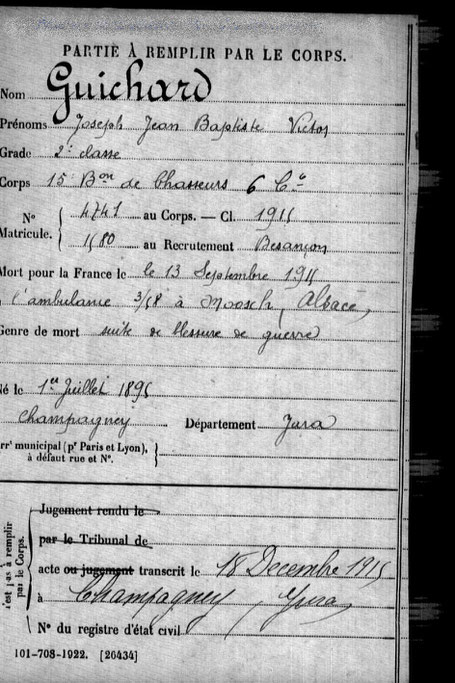 PARTIE À REMPLIR PAR LE CORPS.
Nom Guichard
Prénoms Joseph Jean Baptiste Victor
Grade 2e classe
Corps 15e Bon de Chasseurs 6 Cie
N° Matricule. { 4741 au Corps. — Cl. 1915
1580 au Recrutement Besançon
Mort pour la France le le 13 Septembre 1915
à l'ambulance 3/58 à Moosch, Alsace,
Genre de mort suite de blessure de guerre
Né le 1er Juillet 1895
Champagney Département Jura
Arrt municipal (pr Paris et Lyon),
à défaut rue et N°. }
Jugement rendu le
par le Tribunal de
acte ou jugement transcrit le 18 Decembre 1915
à Champagney, Jura,
N° du registre d'état civil
n'est pas à remplir
par le Corps.
101-708-1922. [26434]